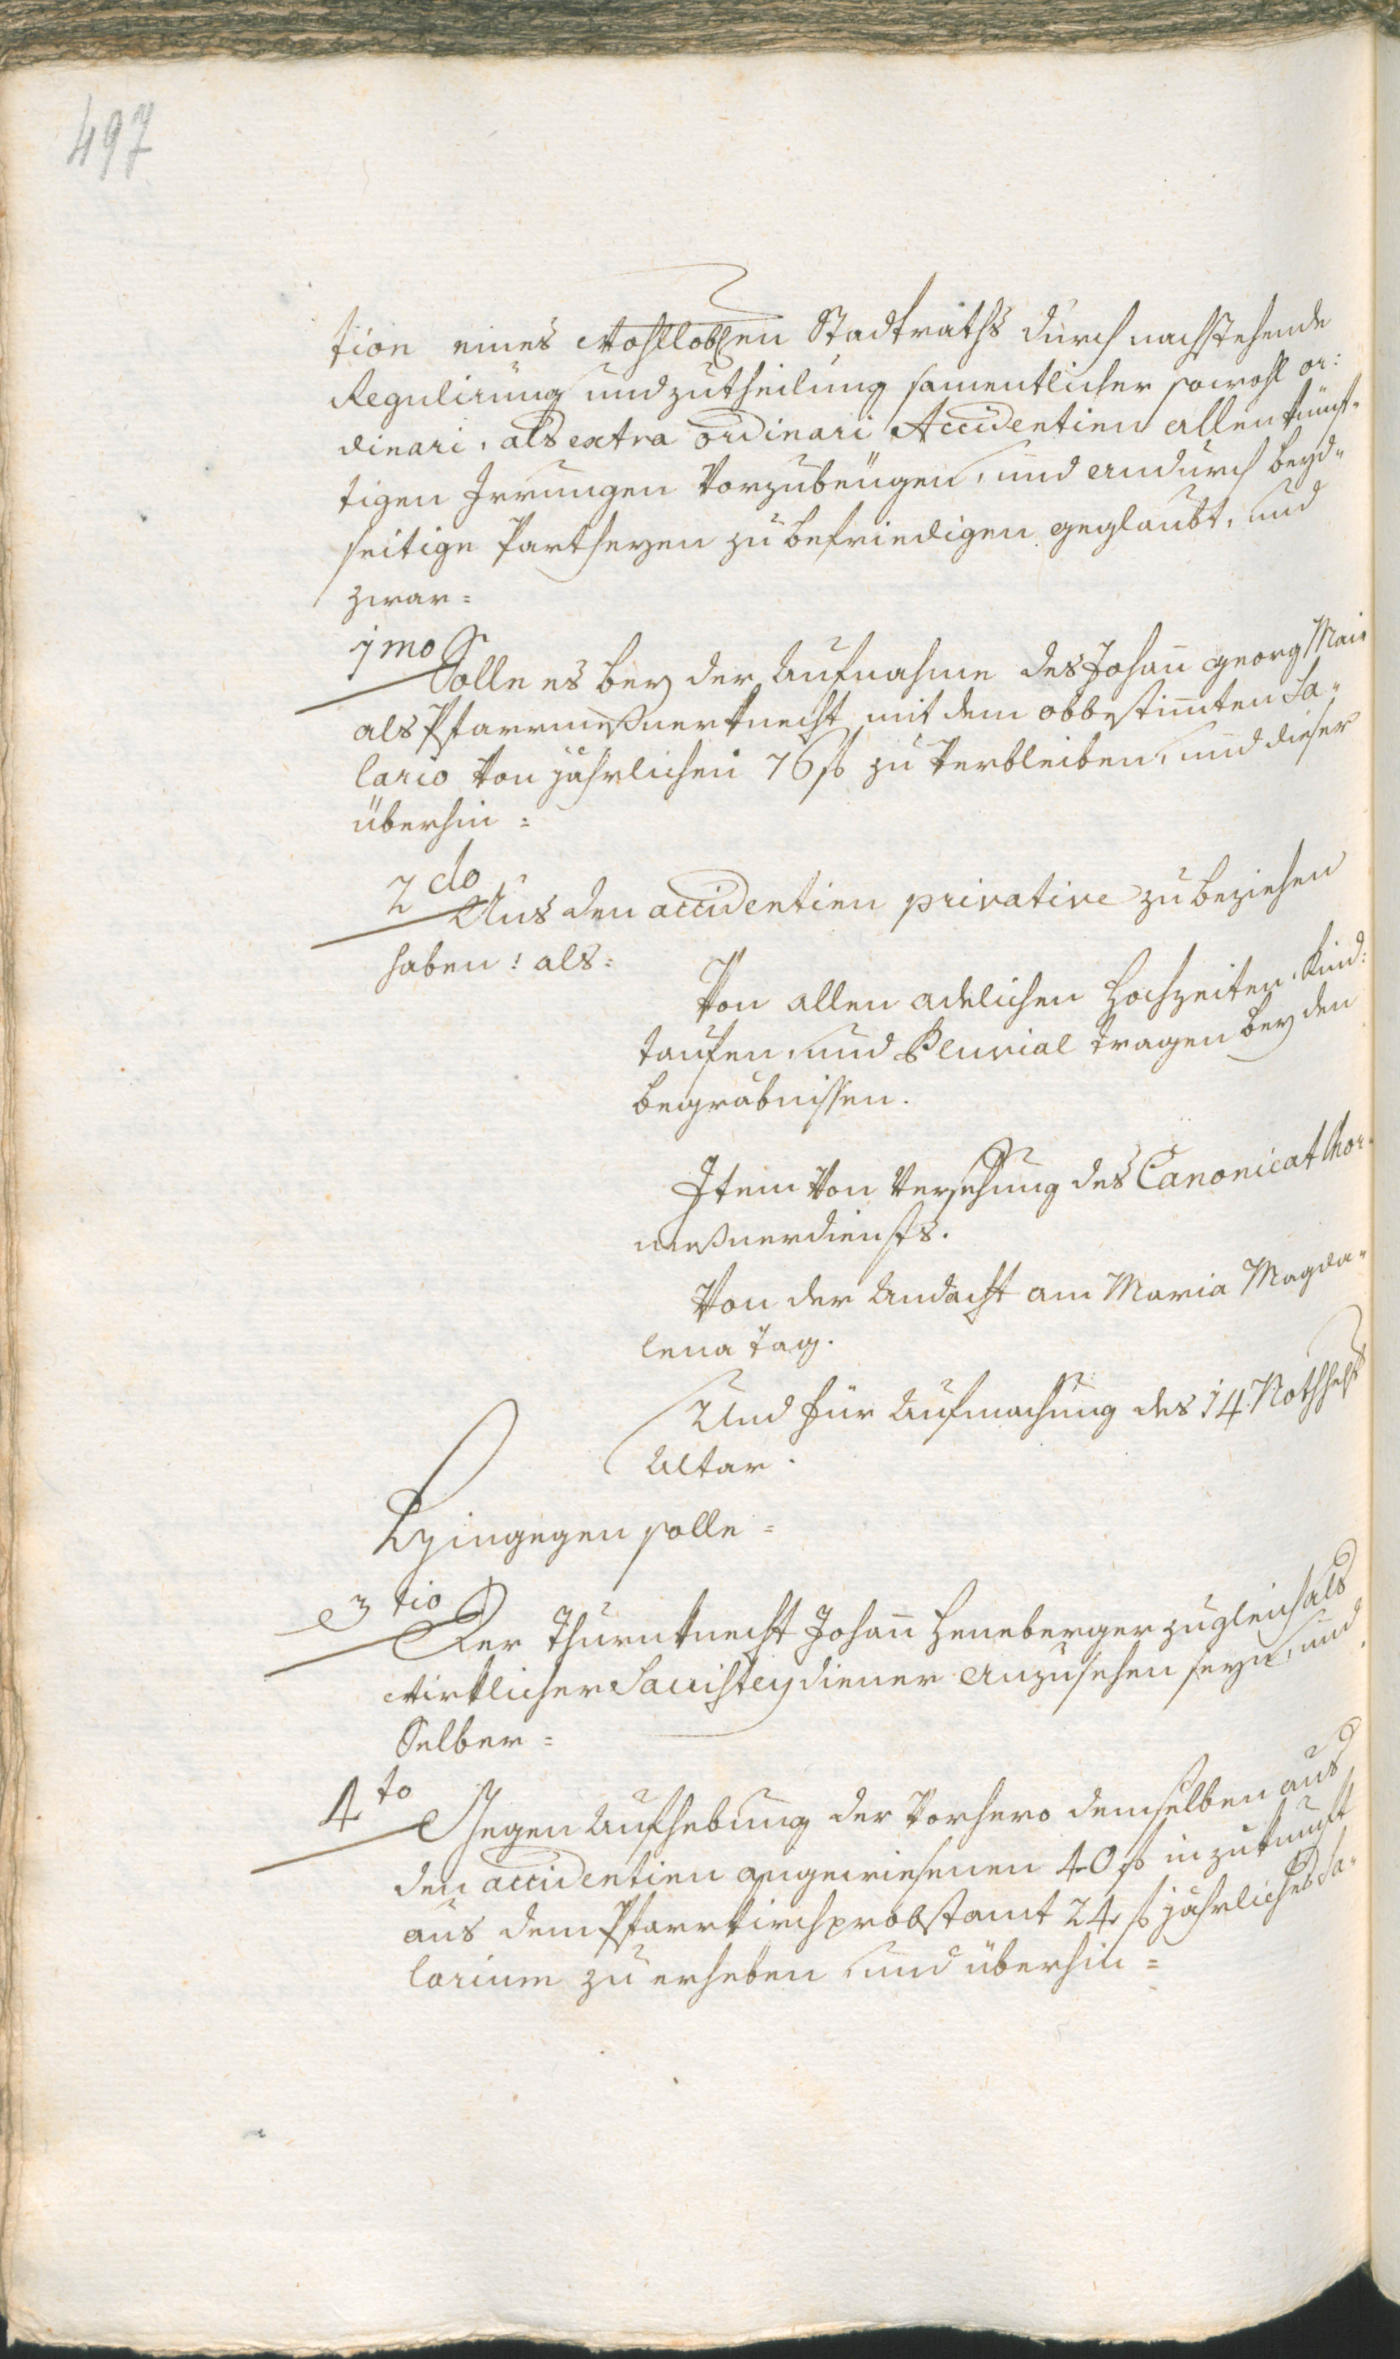 497
tion eines Wohlloblen Stadtraths durch nachstehende
Regulirung und zutheilung samentlicher sowohl or:
dinari, als extra ordinari Accidentien allen künf-
tigen Irrungen vorzubeugen, und andurch beyd-
seitige Partheyen zu befriedigen geglaubt, und
zwar =
1mo Solle es bey der Aufnahme des Johan̄ georg Mair
als Pfarrmeßnerknecht mit dem obbestim̄ten Sa-
lario von jährlichen 76 f zu verbleiben, und dieser
überhin =
2do Aus den accidentien privative zu beziehen
haben: als:
Von allen adelichen Hochzeiten, Kind:
taufen, und Pluvial tragen bey den
begräbnissen.
Item von Versehung des Canonicat Chor-
meßnerdiensts.
Von der Andacht am Maria Magda-
lena Tag.
Und für Aufmachung des 14 Nothhelf
Altar.
Hingegen solle =
3tio Der Thurnknecht Johan̄ Heneberger zugleich als
wirklicher Sacristeydiener anzusehen seyn, und
Selber =
4to Gegen Aufhebung der vorhero demselben aus
den accidentien angewiesenen 40 f in zukunft
aus dem Pfarrkirchprobstamt 24 f jährliches Sa-
larium zu erheben, und überhin =